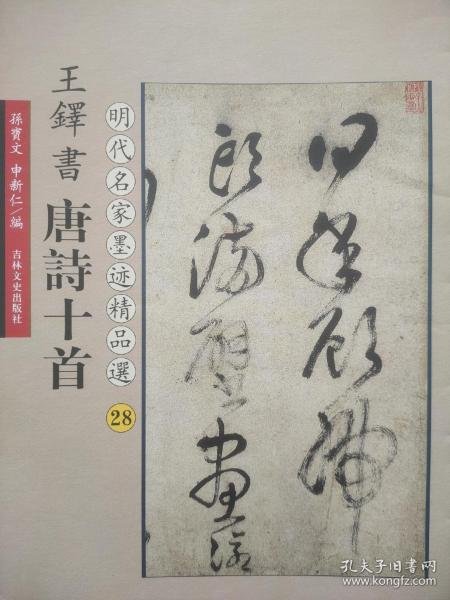 何年顧虎
頭滿壁畫
明代名家墨迹精品選 28
王鐸書 唐詩十首
孫寶文 申新仁/編
吉林文史出版社
孔夫子旧书网
www.kongfz.com